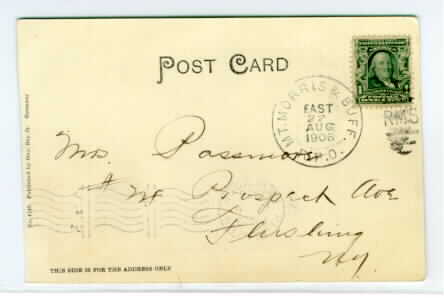 POST CARD
MT. MORRIS & BUFF.
EAST
22
AUG
1906
R.P.O.
RMS
1
Mrs. Passmore
Prospect Ave
Flushing
Ny
Published by
Germany
THIS SIDE IS FOR THE ADDRESS ONLY